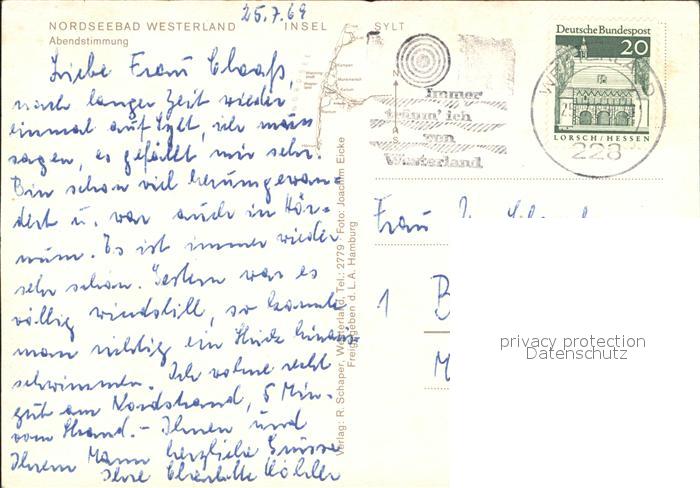 25.7.69
NORDSEEBAD WESTERLAND INSEL SYLT
Abendstimmung
Liebe Frau Claaß,
nach langer Zeit wieder
einmal auf Sylt, ich muss
sagen, es gefällt mir sehr.
Bin schon viel herumgewan-
dert u. war auch in Hör-
num. Es ist immer wieder
sehr schön. Gestern war es
völlig windstill, so konnte
man richtig ein Stück hinaus-
schwimmen. Ich wohne recht
gut am Nordstrand, 5 Min.
vom Strand. - Ihnen und
Ihrem Mann herzliche Grüsse
Ihre Charlotte Köhler
Verlag: R. Schaper, Westerland, Tel.: 2779 · Foto: Joachim Eicke
Freigegeben d. L.A. Hamburg
Immer
träum' ich
von
Westerland
Deutsche Bundespost
20
LORSCH/HESSEN
228
Frau
1 B
M
privacy protection
Datenschutz